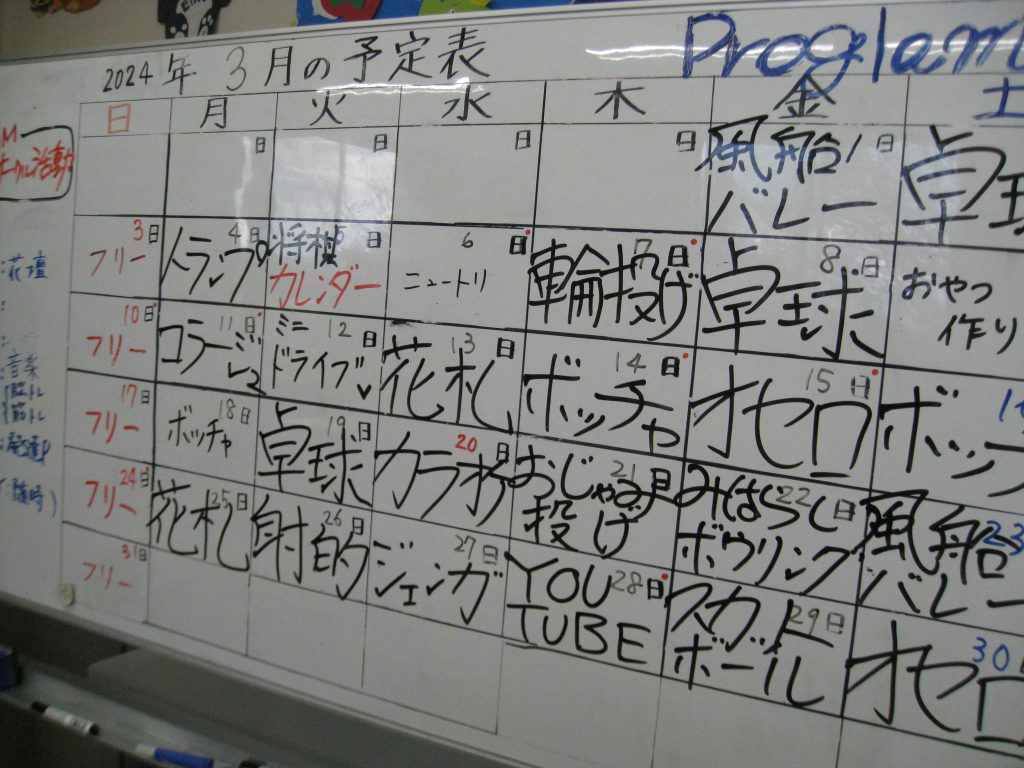 2024年 3月の予定表
Proglam
日 月 火 水 木 金 土
日 日 日 日 1日
風船バレー
卓球
3日 フリー
4日 トランプ
5日 将棋 カレンダー
6日 ニュートリ
7日 輪投げ
8日 卓球
おやつ作り
10日 フリー
11日 コラージュ
12日 ミニドライブ
13日 花札
14日 ボッチャ
15日 オセロ
ボッ
17日 フリー
18日 ボッチャ
19日 卓球
20日 カラオケ
21日 おじゃみ投げ
22日 みはらしボウリング
23 風船バレー
24日 フリー
25日 花札
26日 射的
27日 ジェンガ
28日 YOU TUBE
29日 スカットボール
30 オセロ
31日 フリー
活動
:花壇
:音楽
筋トレ
随時)